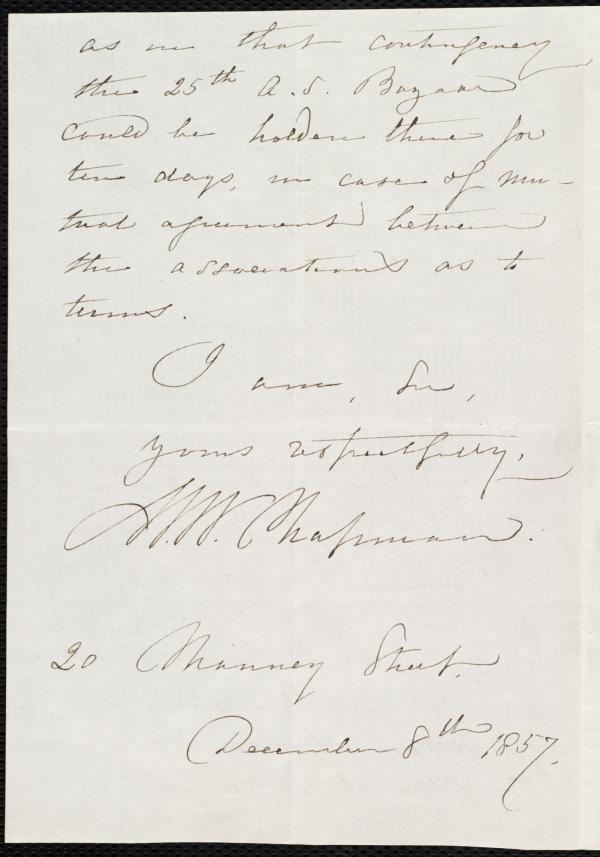 as in that contingency
the 25th A. S. Bazaar
could be holden there for
ten days, in case of mu-
tual agreement between
the associations as to
terms.
I am, Sir,
yours respectfully,
M. W. Chapman.
20 Chauncy Street.
December 8th 1857.